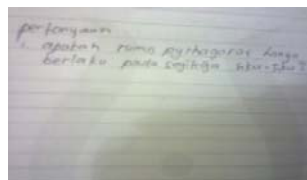 pertanyaan
1. apakah rumus pythagoras hanya
berlaku pada segitiga siku-siku?